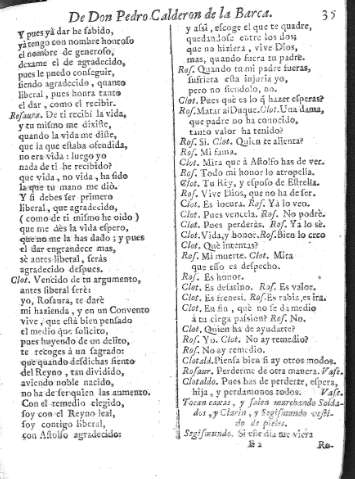 De Don Pedro Calderon de la Barca. 35
Y pues yà dar he sabido,
yà tengo con nombre honroso
el nombre de generoso,
dexame el de agradecido,
pues le puedo conseguir,
siendo agradecido, quanto
liberal, pues honra tanto
el dar, como el recibir.
Rosaura. De ti recibì la vida,
y tu mismo me dixiste,
quando la vida me diste,
que la que estaba ofendida,
no era vida: luego yo
nada de ti he recibido?
que vida, no vida, ha sido
la que tu mano me diò.
Y si debes ser primero
liberal, que agradecido,
(como de ti mismo he oido)
que me dès la vida espero,
que no me la has dado; y pues
el dar engrandece mas,
sè antes liberal, seràs
agradecido despues.
Clot. Vencido de tu argumento,
antes liberal serè:
yo, Rosaura, te darè
mi hazienda, y en un Convento
vive, que està bien pensado
el medio que solicito,
pues huyendo de un delito,
te recoges à un sagrado
que quando desdichas siento
del Reyno, tan dividido,
aviendo noble nacido,
no ha de ser quien las aumento.
Con el remedio elegido,
soy con el Reyno leal,
soy contigo liberal,
con Astolfo agradecido:
y assi, escoge el que te quadre,
quedandose entre los dos;
que no hiziera, vive Dios,
mas, quando fuera tu padre.
Ros. Quando tu mi padre fueras,
sufriera esta injuria yo,
pero no siendolo, no.
Clot. Pues què es lo q̃ hazer esperas?
Ros. Matar al Duque. Clot. Una dama,
que padre no ha conocido,
tanto valor ha tenido?
Ros. Si. Clot. Quien te alienta?
Ros. Mi fama.
Clot. Mira que à Astolfo has de ver.
Ros. Todo mi honor lo atropella.
Clot. Tu Rey, y esposo de Estrella.
Ros. Vive Dios, que no ha de ser.
Clot. Es locura. Ros. Yà lo veo.
Clot. Pues vencela. Ros. No podrè.
Clot. Pues perderàs. Ros. Yà lo sè.
Clot. Vida, y honor. Ros. Bien lo creo
Clot. Què intentas?
Ros. Mi muerte. Clot. Mira
que esso es despecho.
Ros. Es honor.
Clot. Es desatino. Ros. Es valor.
Clot. Es frenesi. Ros. Es rabia, es ira.
Clot. En fin, què no se dà medio
à tu ciega passion? Ros. No.
Clot. Quien ha de ayudarte?
Ros. Yo. Clot. No ay remedio?
Ros. No ay remedio.
Clotald. Piensa bien si ay otros modos.
Rosaur. Perderme de otra manera. Vase.
Clotaldo. Pues has de perderte, espera,
hija, y perdamonos todos. Vase.
Tocan caxas, y salen marchando Solda-
dos, y Clarin, y Segismundo vesti-
do de pieles.
Segismundo. Si este dia me viera
E 2 Ro-